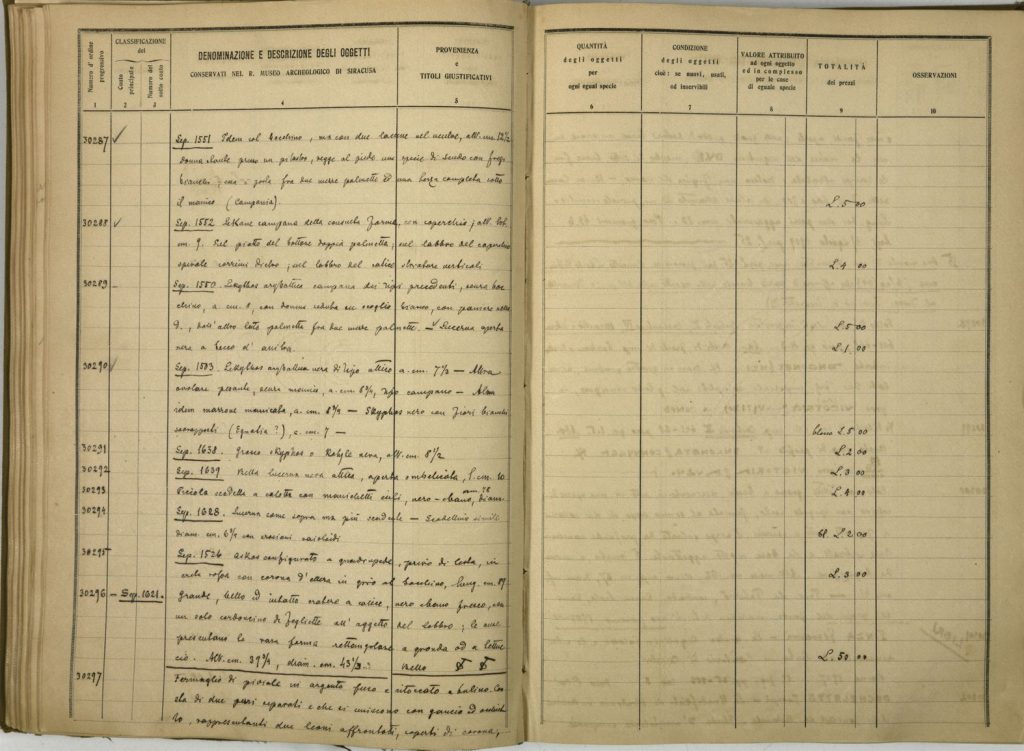 Numero d'ordine progressivo
CLASSIFICAZIONE
del
Conto principale
Numero del sotto conto
DENOMINAZIONE E DESCRIZIONE DEGLI OGGETTI
CONSERVATI NEL R. MUSEO ARCHEOLOGICO DI SIRACUSA
PROVENIENZA
e
TITOLI GIUSTIFICATIVI
1 2 3 4 5
QUANTITÀ
degli oggetti
per
ogni egual specie
CONDIZIONE
degli oggetti
cioè: se nuovi, usati,
od inservibili
VALORE ATTRIBUITO
ad ogni oggetto
ed in complesso
per le cose
di eguale specie
TOTALITÀ
dei prezzi
OSSERVAZIONI
6 7 8 9 10
30287 Sep. 1551 Idem col bocchino, ma con due lacune nel ventre, alt. cm. 12½
donna stante presso un pilastro, regge al piedo una specie di scudo con fregi
bianchi; fra due mezze palmette ed una terza completa sotto
il manico (Campania). L. 5 00
30288 Sep. 1552 Lekane campana della consueta forma, con coperchio; alt. tot.
cm. 9. Sul piatto del bottone doppia palmetta; sul labbro del coperchio
spirale correnti dietro; sul labbro del calice verticali L. 4 00
30289 Sep. 1550. Lekythos campana dei tipi precedenti, senza boc-
chino, a. cm. 8, con donna seduta su scoglio bianco, con paniere nella
d., dall'altro lato palmetta fra due mezze palmette. — Lucerna aperta L. 5 00
nera a becco d' L. 1 00
30290 Sep. 1503 Lekythos nera di tipo attico a. cm. 7½ — Altra
pesante, senza manico, a. cm. 8¾, tipo campano — Altra
idem marrone manicata, a. cm. 8¾ — Skyphos nero con fiori bianchi
(Egnatia?), a. cm. 7 — L. 5 00
30291 Sep. 1638. Grosso skyphos o kotyle nera, alt. cm. 8½ L. 2 00
30292 Sep. 1639 Bella lucerna nera attica, aperta, l. cm. 10 L. 3 00
30293 Piccola scodella a calotta con manichetti, nero-ebano, diam. L. 4 00
30294 Sep. 1628. Lucerna come sopra ma più scadente — Scodellina simile
diam. cm. 6¾ con erosioni L. 2 00
30295 Sep. 1526 Askos configurato a quadrupede, privo di testa, in
creta rossa con corona d'ellera in giro al bocchino, lung. cm. L. 3 00
30296 — Sep. 1621. Grande, bello ed intatto cratere a calice, nero ebano fresco, con
un solo cordoncino di fogliette all'oggetto del labbro; le anse
presentano la rara forma rettangolare a gronda od a lettuc-
cio. Alt. cm. 39¾, diam. cm. 43⅓. Bello L. 50 00
30297 Fermaglio di in argento fuso e ritoccato a bulino. Con
sta di due pezzi separati e che si uniscono con gancio ed occhiel-
lo, rappresentanti due leoni affrontati, coperti di corona,